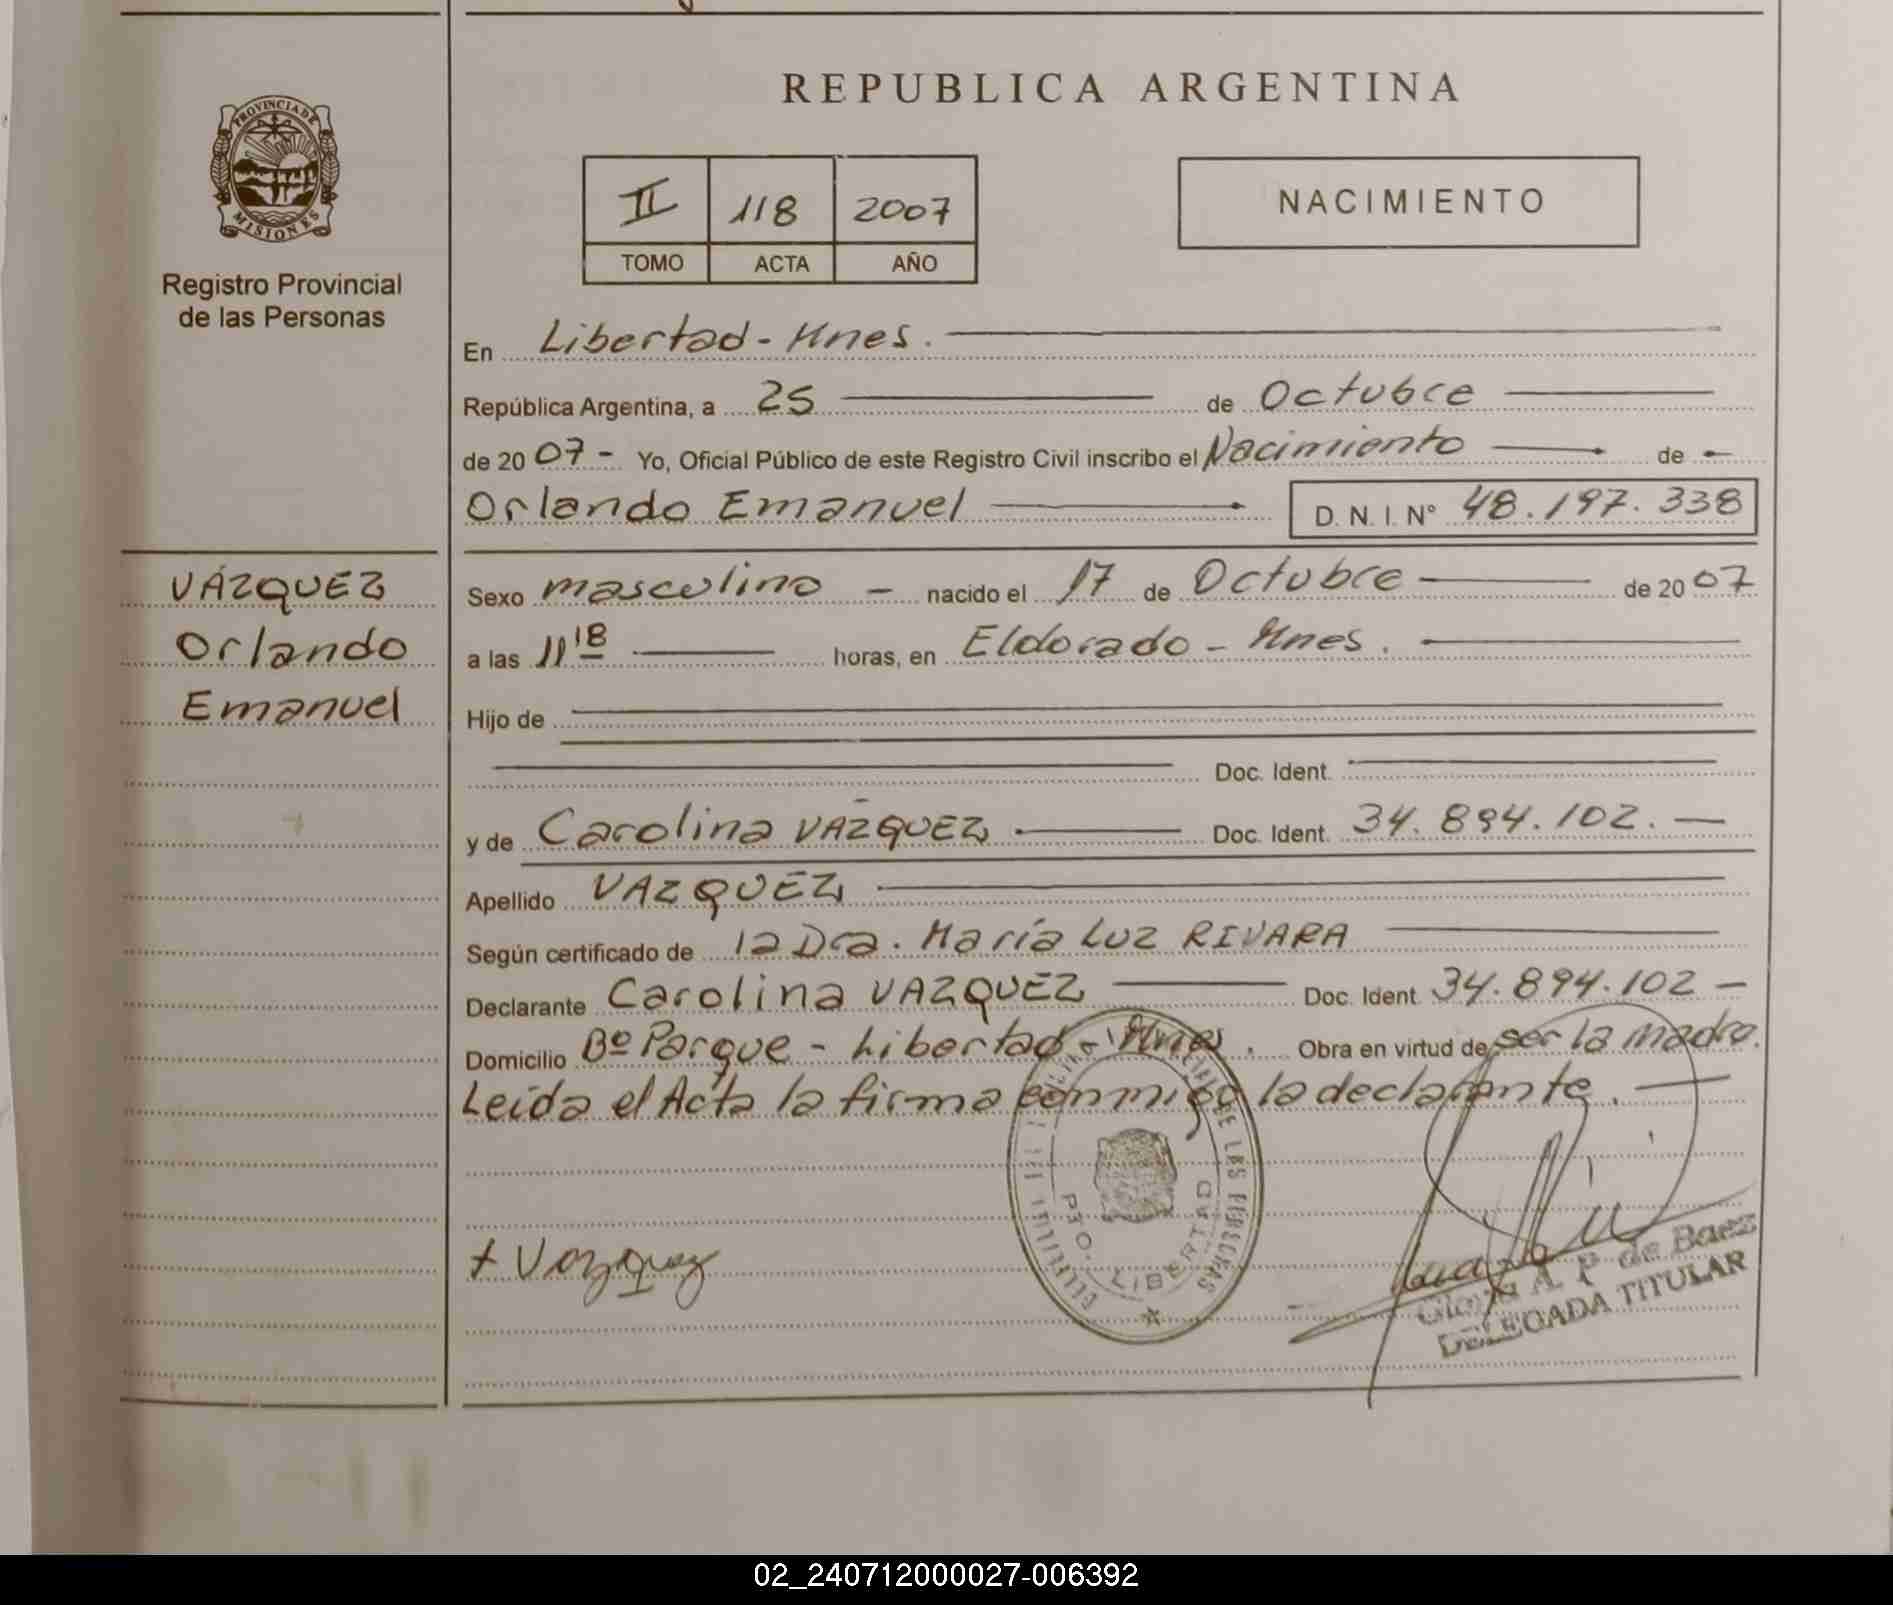 PROVINCIA DE
MISIONES
Registro Provincial
de las Personas
VÁZQUEZ
Orlando
Emanuel
REPUBLICA ARGENTINA
II 118 2007
TOMO ACTA AÑO
NACIMIENTO
En Libertad - Mnes.
República Argentina, a 25 de Octubre
de 20 07 - Yo, Oficial Público de este Registro Civil inscribo el Nacimiento de
Orlando Emanuel D. N. I. N° 48.197.338
Sexo masculino - nacido el 17 de Octubre de 20 07
a las 11 18 horas, en Eldorado - Mnes.
Hijo de
Doc. Ident.
y de Carolina VÁZQUEZ Doc. Ident. 34.894.102. -
Apellido VAZQUEZ
Según certificado de la Dra. María Luz RIVARA
Declarante Carolina VAZQUEZ Doc. Ident. 34.894.102 -
Domicilio Bº Parque - Libertad - Mnes. Obra en virtud de ser la madre.
Leída el Acta la firma conmigo la declarante.
DE LAS PERSONAS
PTO. LIBERTAD
+ Vazquez
A. P. de Baez
DELEGADA TITULAR
02_240712000027-006392